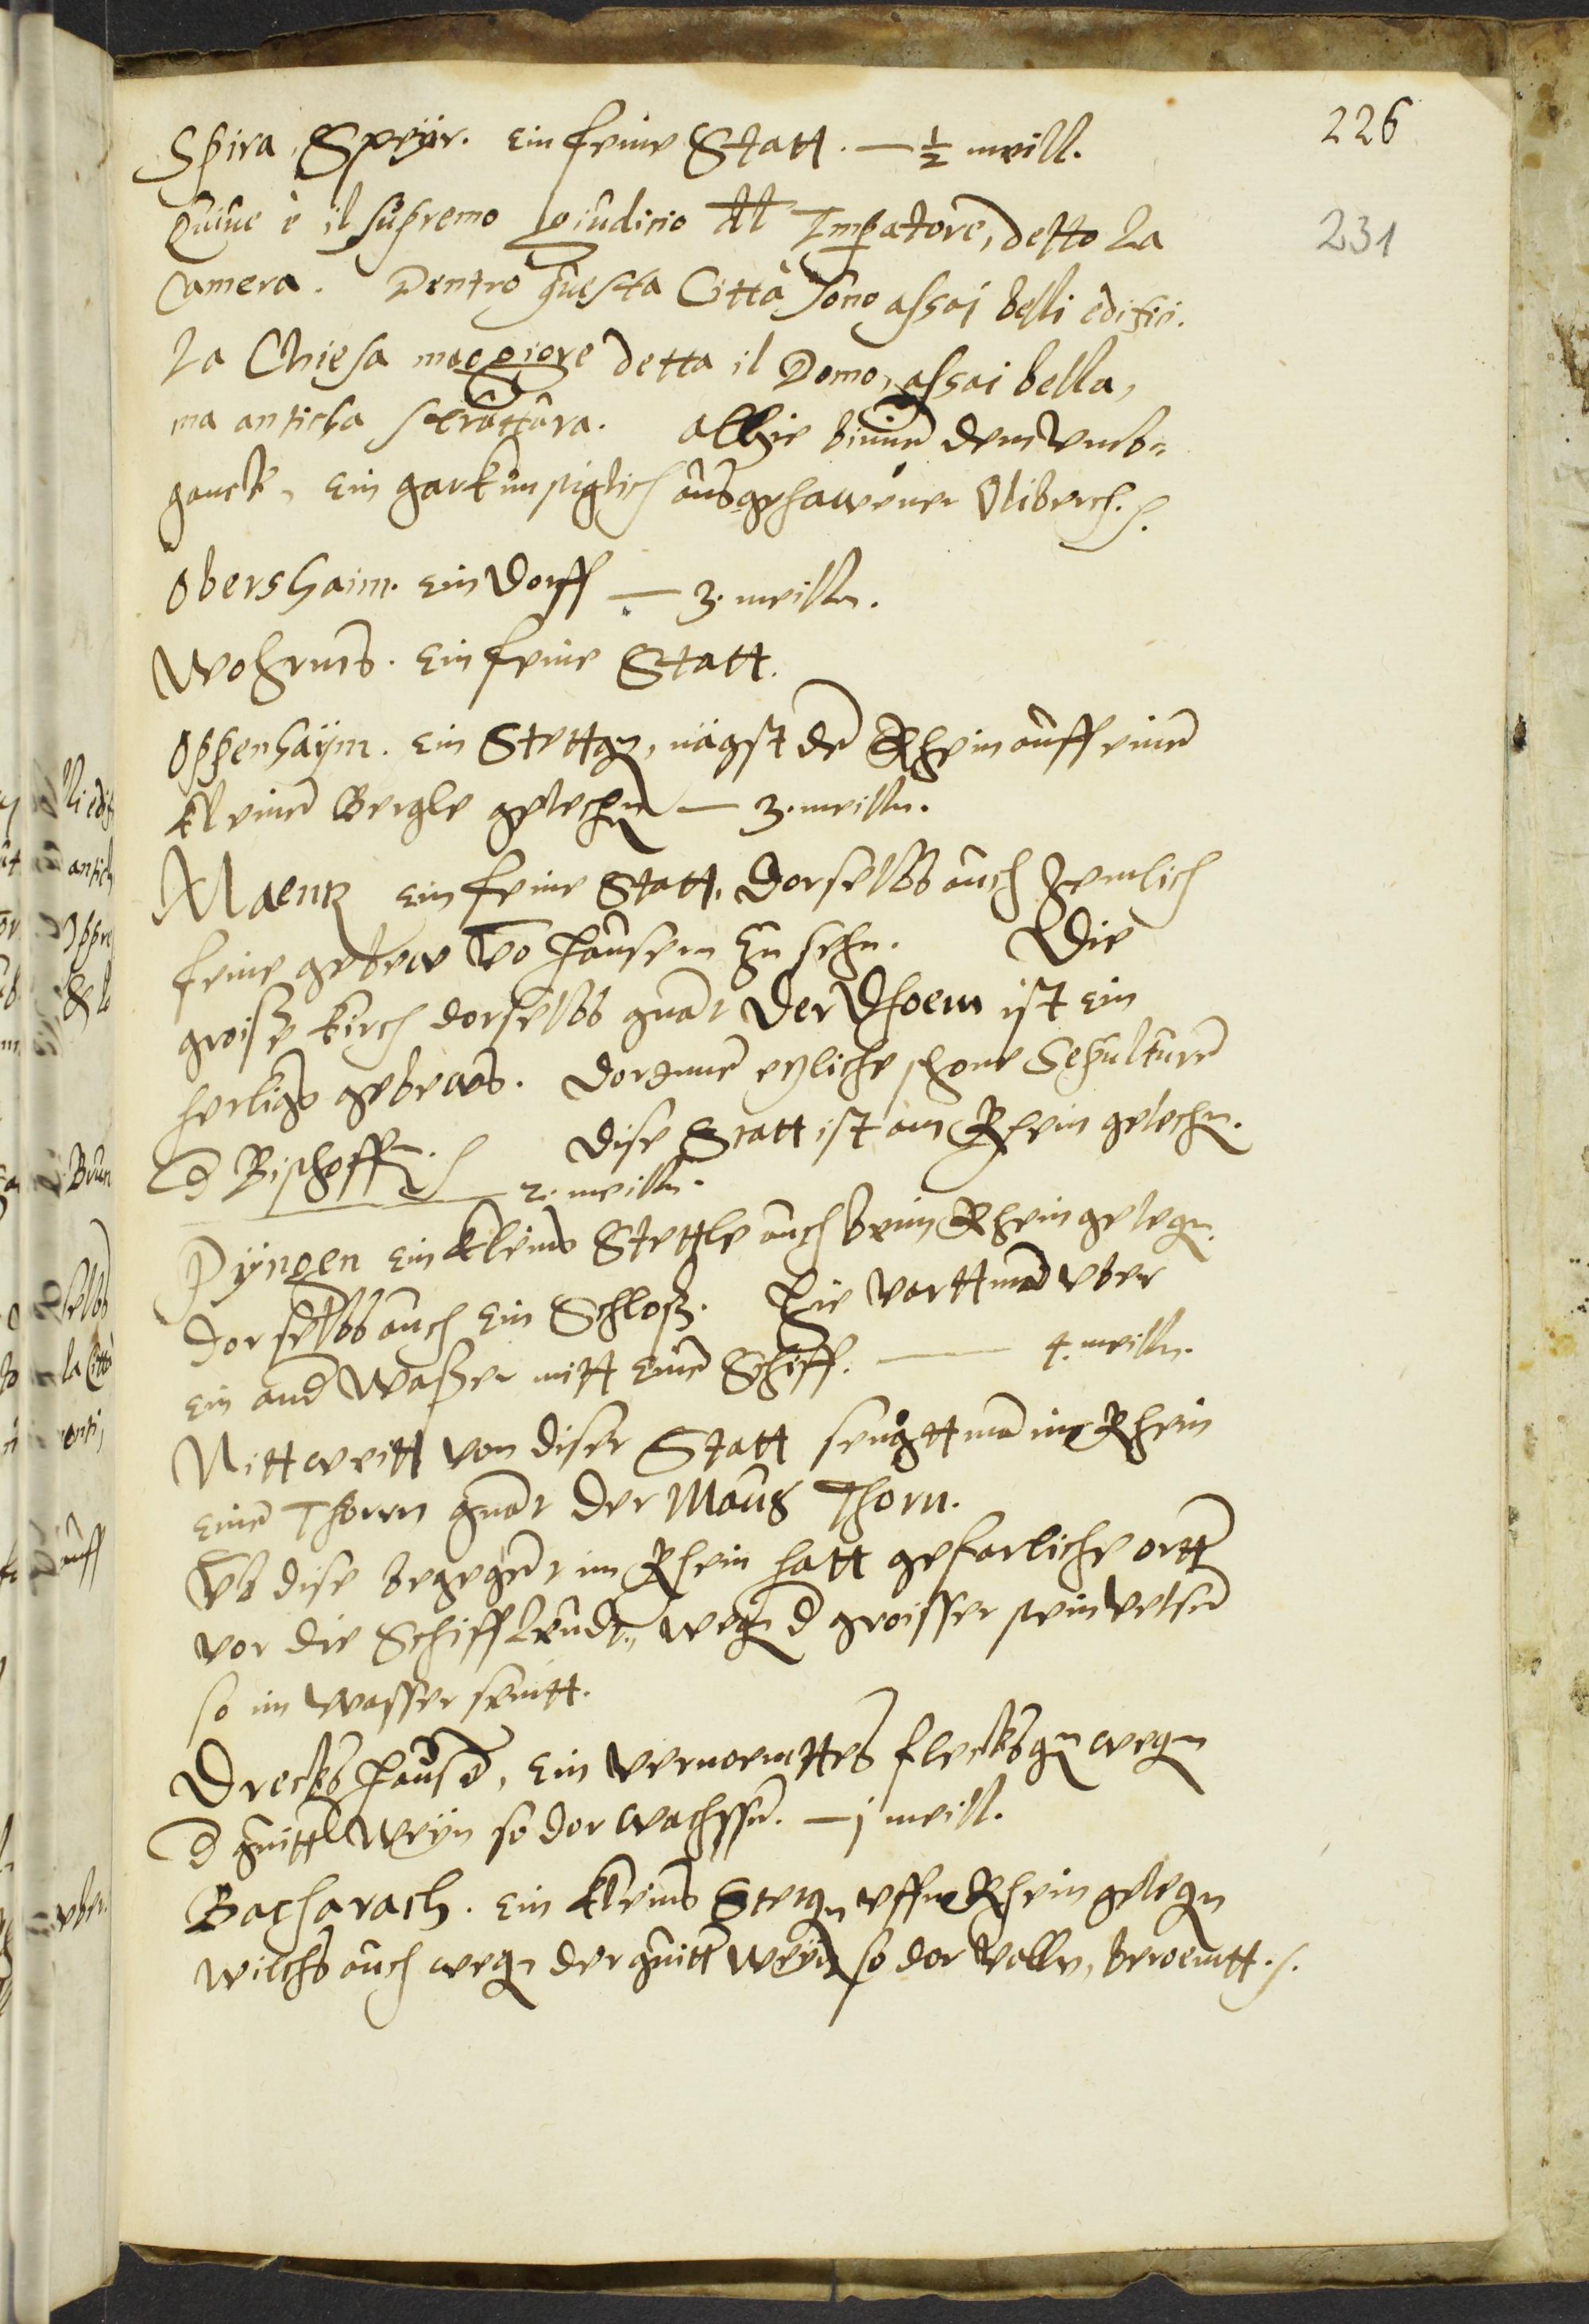 226
231
Spira. Speijr. Ein feine Statt. — ½ meill.
Quiue è il supremo Giudicio del Imperatore, detto La
Camera. Dentro questa Città sono assai belli edifici.
La Chiesa maggiore detta il Domo, assai bella,
ma anticha struttura. Alhie binnen dem Umb=
ganck, ein gar künstiglich ausgehawener Oliberch.
Obershaim. Ein Dorff — 3. meillen.
Wohrms. Ein feine Statt.
Oppenhaijm. Ein Stettgen, nägst dem Rhein auff einem
kleinen Bergle gelechen — 3. meillen.
Maentz ein feine Statt. Dorselbs auch zemlich
feine gebew von Hausern zu sehn. Die
groisse kirch dorselbs gnant Der Dhoem ist ein
herligs gebews. Dorinnen etzliche schone Sepulturen
der Bischoffen. Dise Statt ist am Rhein gelechen.
2. meillen.
Pijngen ein kleins Stettle auch beim Rhein gelegen.
Dorselbs auch Ein Schloß. Hie vartt man uber
Ein ander Waßer mitt einem Schiff. — 4. meillen.
Nitt weitt von diser Statt seugtt man im Rhein
einen Thorrn gnant Der Maus Thorn.
Umb dise begegent im Rhein hatt gefarliche ortten
vor die Schiffleudt, wegen der groisser steinvelsen
so im Wasser seintt.
Drecks Hausen, Ein vernoemttes flecksgen wegen
der gutten Weijn so dor wachssen. — 1 meill.
Bacharach. Ein kleins Stetgen uffm Rhein gelegen
wilchs auch wegen der gutten Weijn so dor vallen, beroemtt.